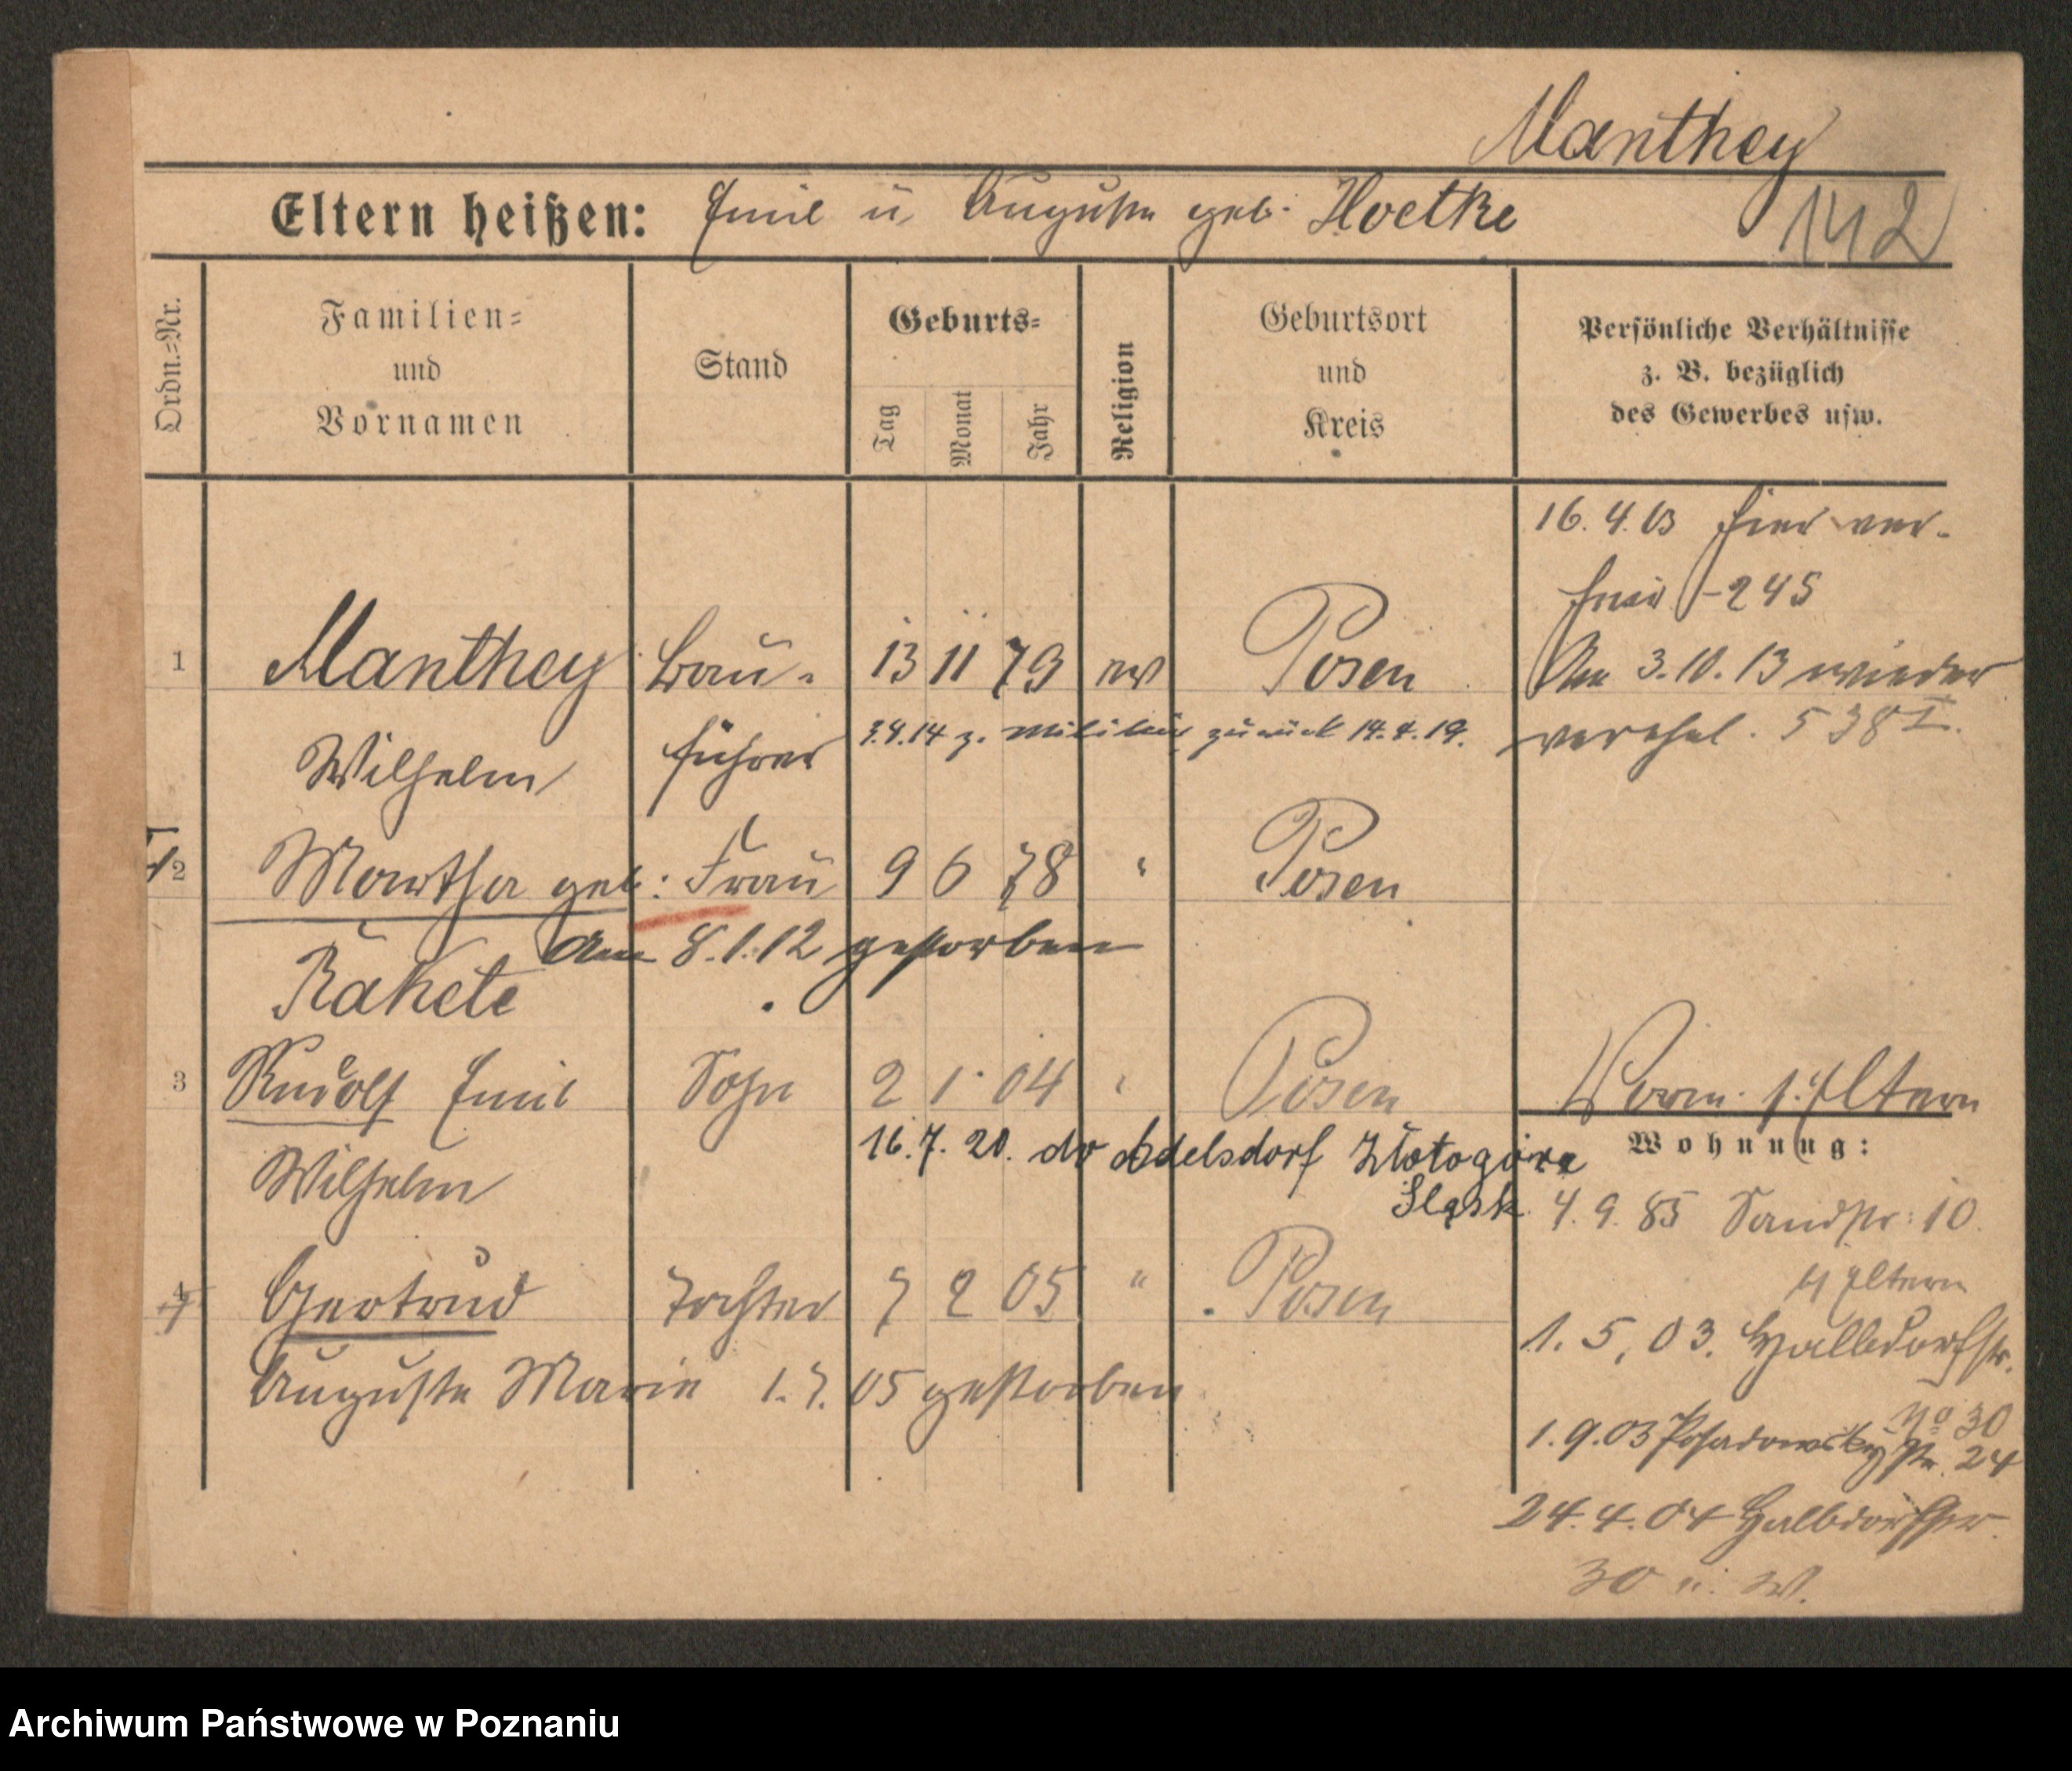 Manthey
Eltern heißen: Emil u Auguste geb. Hoetke
142
Ordn.=Nr.
Familien=
und
Vornamen
Stand
Geburts=
Tag
Monat
Jahr
Religion
Geburtsort
und
Kreis
Persönliche Verhältnisse
z. B. bezüglich
des Gewerbes usw.
16. 4. 03 hier ver-
heir - 245
1 Manthey Bau- 13 11 79 ev Posen
Am 3.10.13 wieder
Wilhelm führer
3.4.14 z. Militär zurück 14.4.19.
verehel. 538 I.
2 Martha geb: Frau 9 6 78 " Posen
Am 8.1.12 gestorben
Rakete
3 Rudolf Emil Sohn 2 1 04 " Posen
Vorm. s. Eltern
Wilhelm
16.7.20. do Adelsdorf Złotogóra
Śląsk
Wohnung:
4. 9. 85 Sandstr: 10.
Eltern
4 Gertrud Tochter 7 2 05 " Posen
1. 5. 03. Halbdorfstr.
No 30
Auguste Marie 1.7.05 gestorben
1.9.03 Posadowskystr. 24
24.4.04 Halbdorfstr.
30 u. W.
Archiwum Państwowe w Poznaniu